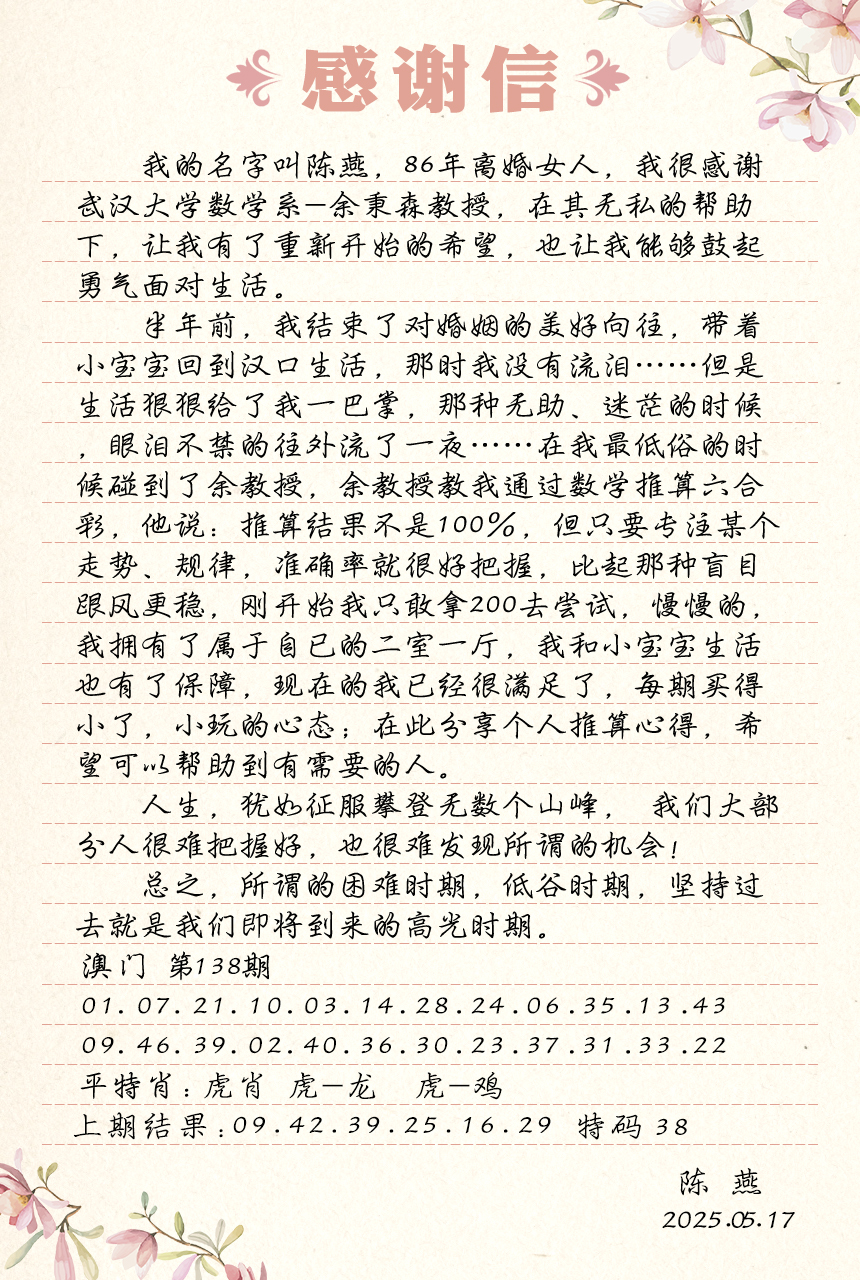 感谢信
我的名字叫陈燕，86年离婚女人，我很感谢
武汉大学数学系—余秉森教授，在其无私的帮助
下，让我有了重新开始的希望，也让我能够鼓起
勇气面对生活。
半年前，我结束了对婚姻的美好向往，带着
小宝宝回到汉口生活，那时我没有流泪……但是
生活狠狠给了我一巴掌，那种无助、迷茫的时候
，眼泪不禁的往外流了一夜……在我最低俗的时
候碰到了余教授，余教授教我通过数学推算六合
彩，他说：推算结果不是100%，但只要专注某个
走势、规律，准确率就很好把握，比起那种盲目
跟风更稳，刚开始我只敢拿200去尝试，慢慢的，
我拥有了属于自己的二室一厅，我和小宝宝生活
也有了保障，现在的我已经很满足了，每期买得
小了，小玩的心态；在此分享个人推算心得，希
望可以帮助到有需要的人。
人生，犹如征服攀登无数个山峰， 我们大部
分人很难把握好，也很难发现所谓的机会！
总之，所谓的困难时期，低谷时期，坚持过
去就是我们即将到来的高光时期。
澳门 第138期
01.07.21.10.03.14.28.24.06.35.13.43
09.46.39.02.40.36.30.23.37.31.33.22
平特肖：虎肖 虎—龙 虎—鸡
上期结果：09.42.39.25.16.29 特码 38
陈 燕
2025.05.17